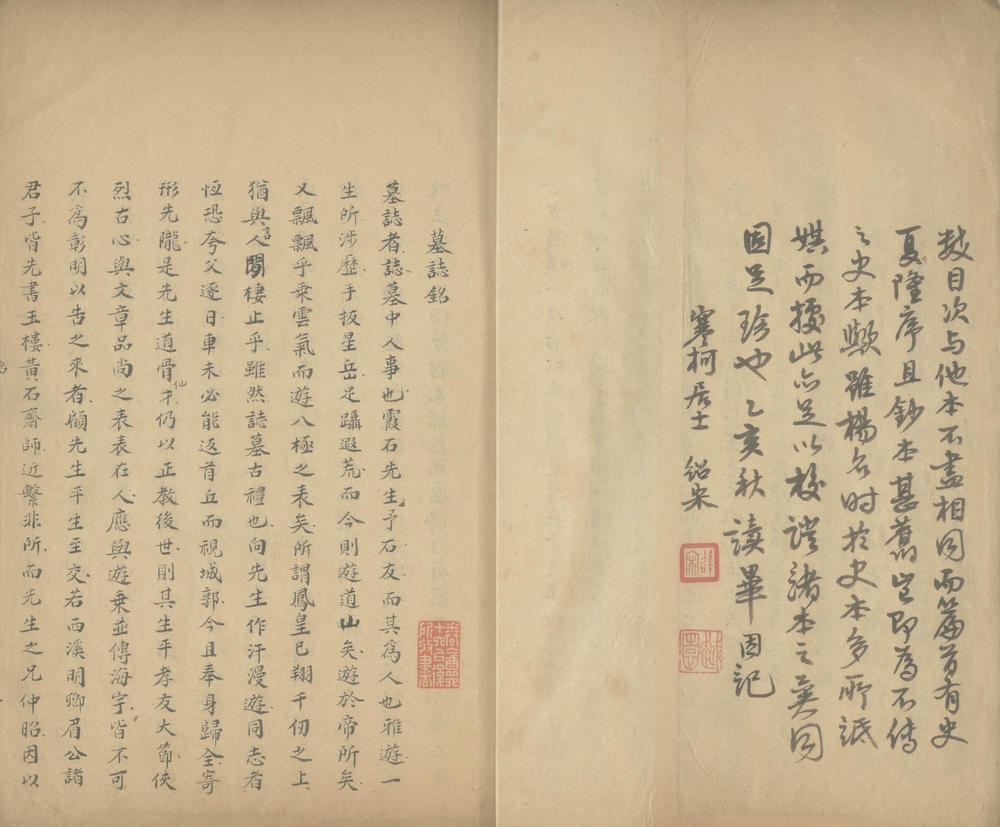 数目次与他本不盡相同而篇首有史
夏隆序且鈔本甚舊豈即為不傳
之史本歟雖楊名時於史本多所詆
娸而據此亦足以校證諸本之異同
固足珍也乙亥秋讀畢因記
寒柯居士 紹宋
墓誌銘
墓誌者誌墓中人事也霞石先生予石友而其為人也雅遊一
生所涉歷手扳星岳足躡遐荒而今則遊道山矣遊於帝所矣
又飄飄乎乗雲氣而遊八極之表矣所謂鳳皇已翔千仞之上
猶與人言閒棲止乎雖然誌墓古禮也向先生作汗漫遊同志者
恆恐夸父逐日車未必能返首丘而視城郭今且奉身歸全寄
形先隴是先生道骨仙才仍以正教後世則其生平孝友大節俠
烈古心與文章品尚之表表在人應與遊乗並傳海宇皆不可
不為彰明以告之來者顧先生平生至交若西溪明卿眉公諸
君子皆先書玉樓黃石齋師近繫非所而先生之兄仲昭因以